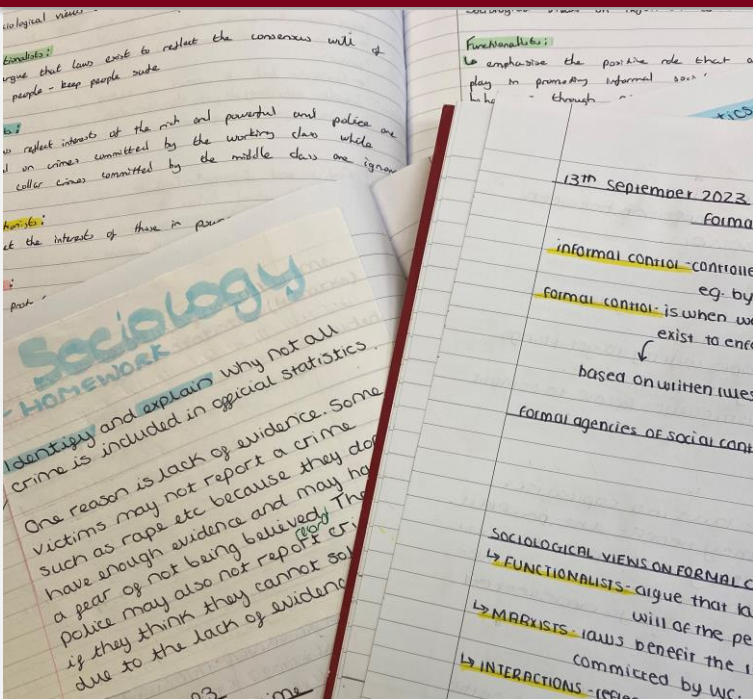 ciological views
tionalists:
argue that laws exist to reflect the consensus will of
people - keep people safe
reflect interests of the rich and powerful and police are
on crimes committed by the working class while
collar crimes committed by the middle class are ignor
the interests of those in power
Functionalists:
↳ emphasise the positive role that a
play in promoting informal
through
Sociology
- HOMEWORK
Identify and explain why not all
crime is included in official statistics.
One reason is lack of evidence. Some
victims may not report a crime
such as rape etc because they don
have enough evidence and may ha
a fear of not being believed. The
police may also not report cri
record
if they think they cannot sol
due to the lack of evidenc
tics
13th September 2023
Forma
informal control - controlle
eg. by
formal control - is when w
exist to enfo
based on written rules
formal agencies of social cont
SOCIOLOGICAL VIEWS ON FORMAL C
↳ FUNCTIONALISTS - argue that la
will of the pe
↳ MARXISTS - laws benefit the
committed by wo
↳ INTERACTIONS - reflec